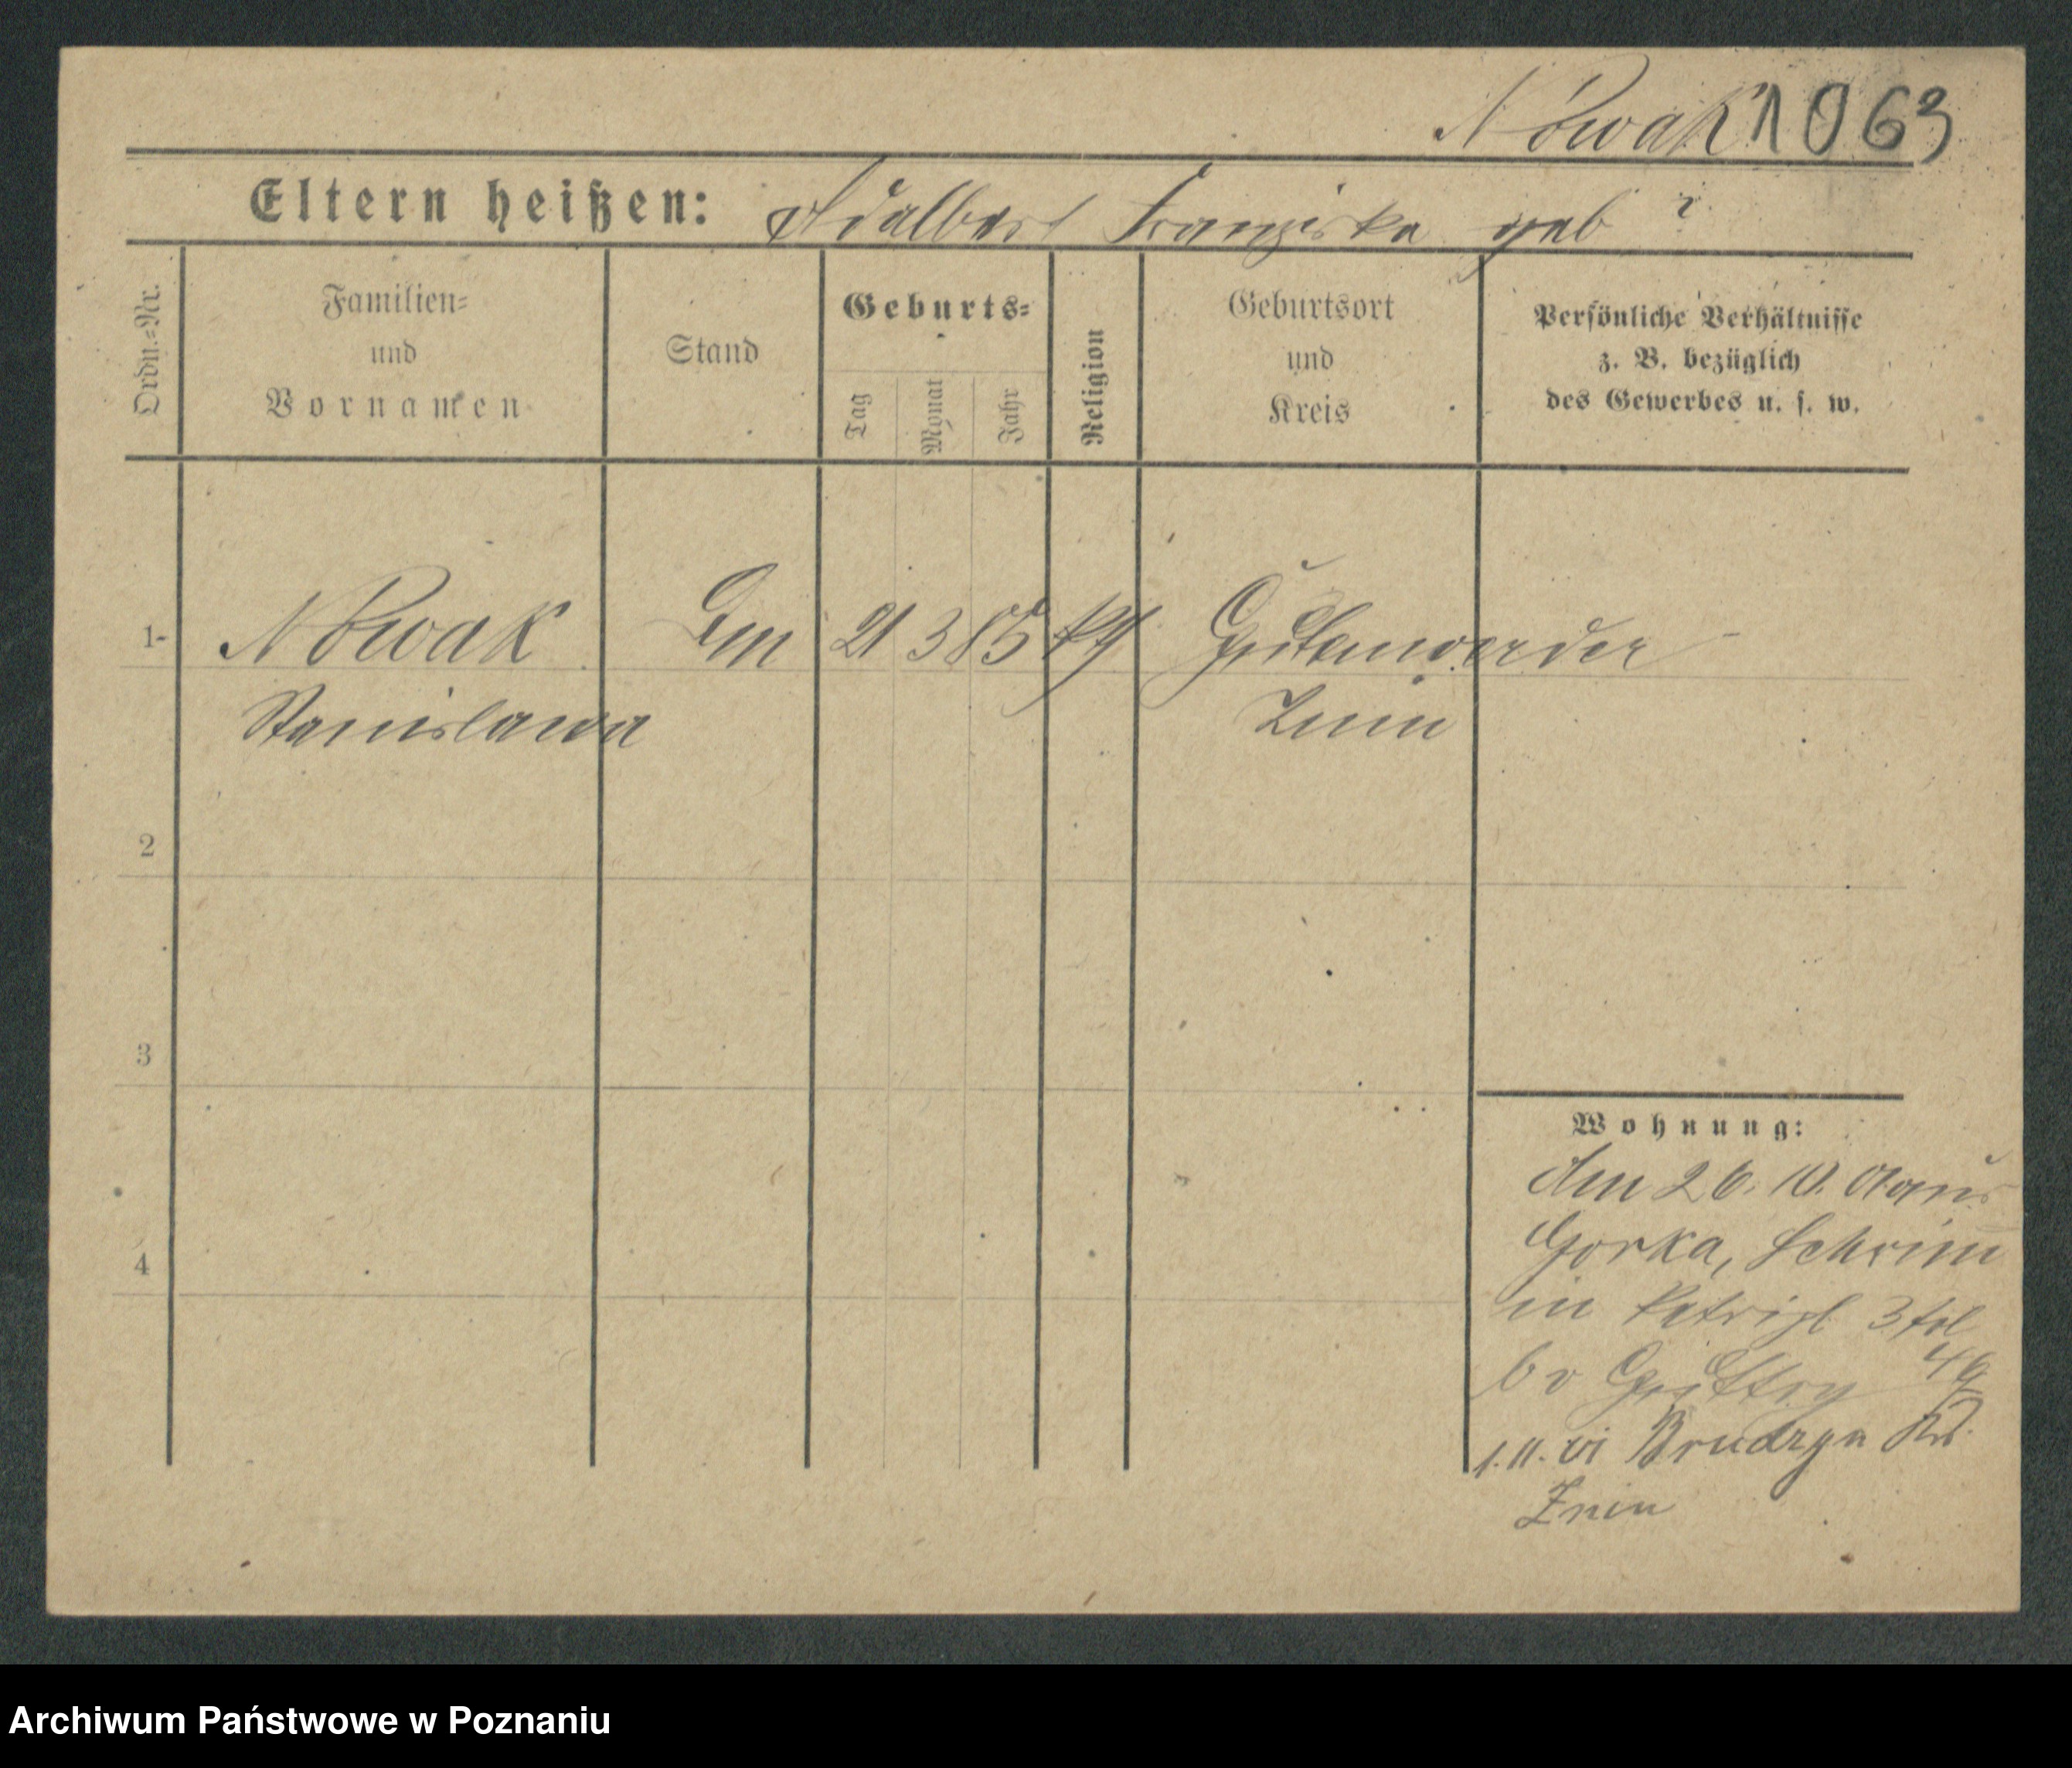 Nowak 1063
Eltern heißen: Adalbert Franziska geb ?
Ordn.=Nr.
Familien=
und
Vornamen
Stand
Geburts=
Tag
Monat
Jahr
Religion
Geburtsort
und
Kreis
Persönliche Verhältnisse
z. B. bezüglich
des Gewerbes u. s. w.
1- Nowak 21 3 85 Gutenwerder
Stanislawa Znin
2
3
4
Wohnung:
Am 26. 10. aus
Gorka, Schrim
in 3
b v 49
1. 11. Brudzyn
Znin
Archiwum Państwowe w Poznaniu